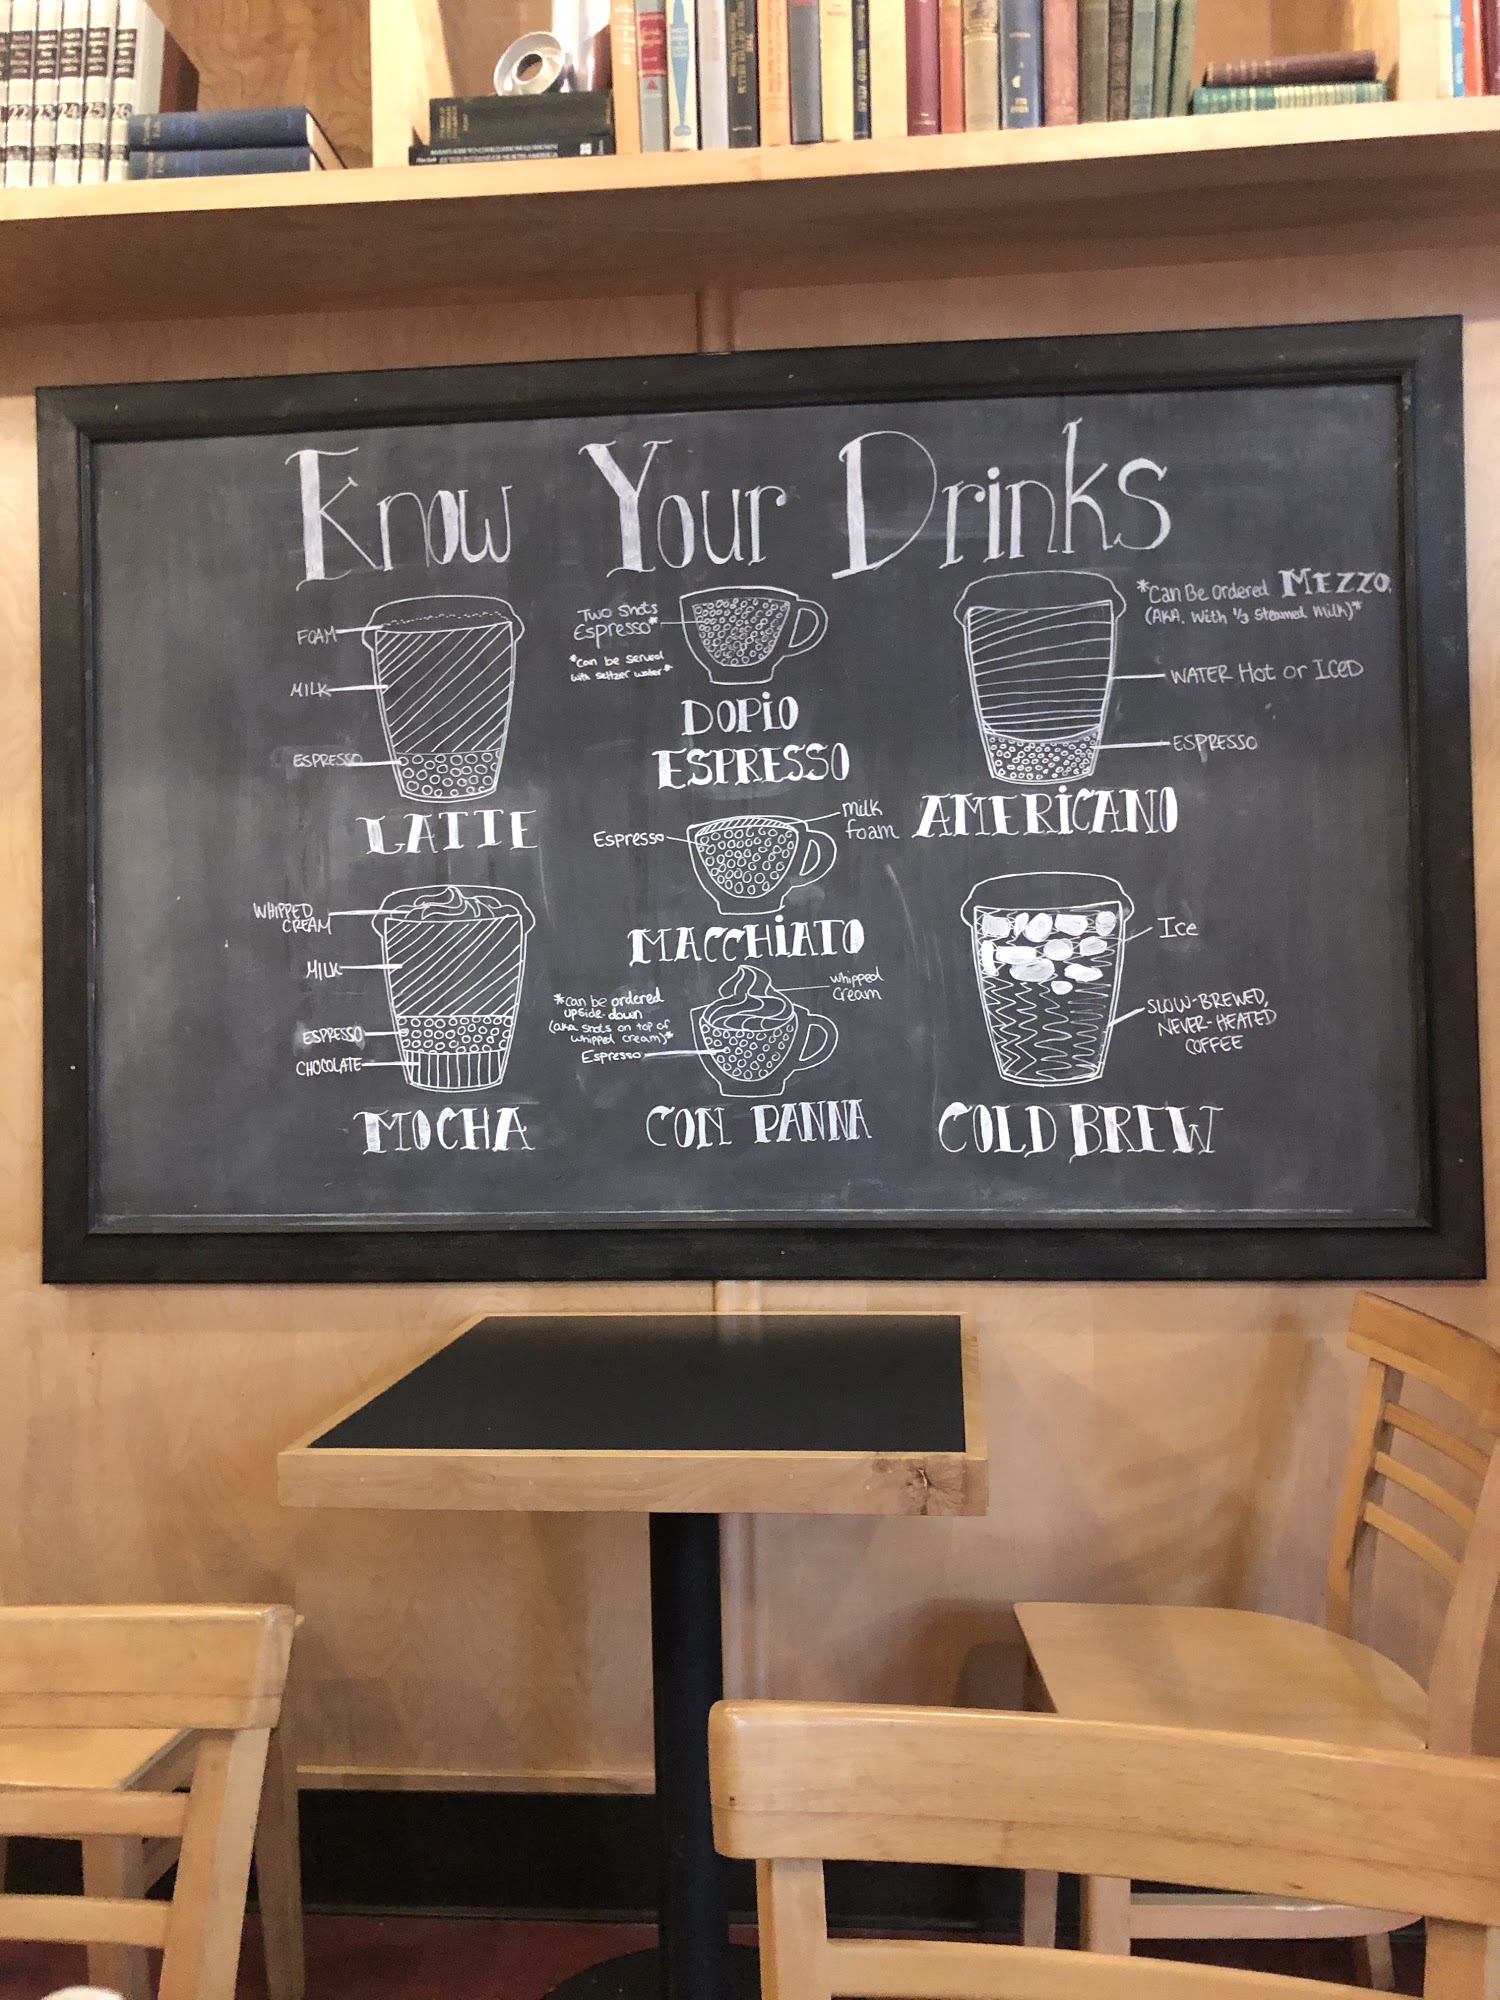 22 23 24 25 26
Know Your Drinks
FOAM
MILK
ESPRESSO
LATTE
Two Shots
Espresso*
*can be served
with seltzer water*
DOPIO
ESPRESSO
*Can Be ordered MEZZO,
(AKA. With 1/3 Steamed Milk)*
WATER Hot or ICED
ESPRESSO
AMERICANO
Espresso
milk
foam
MACCHIATO
WHIPPED
CREAM
MILK
ESPRESSO
CHOCOLATE
MOCHA
whipped
cream
*can be ordered
upside-down
(aka shots on top of
whipped cream)*
Espresso
CON PANNA
Ice
SLOW-BREWED,
NEVER-HEATED
COFFEE
COLD BREW